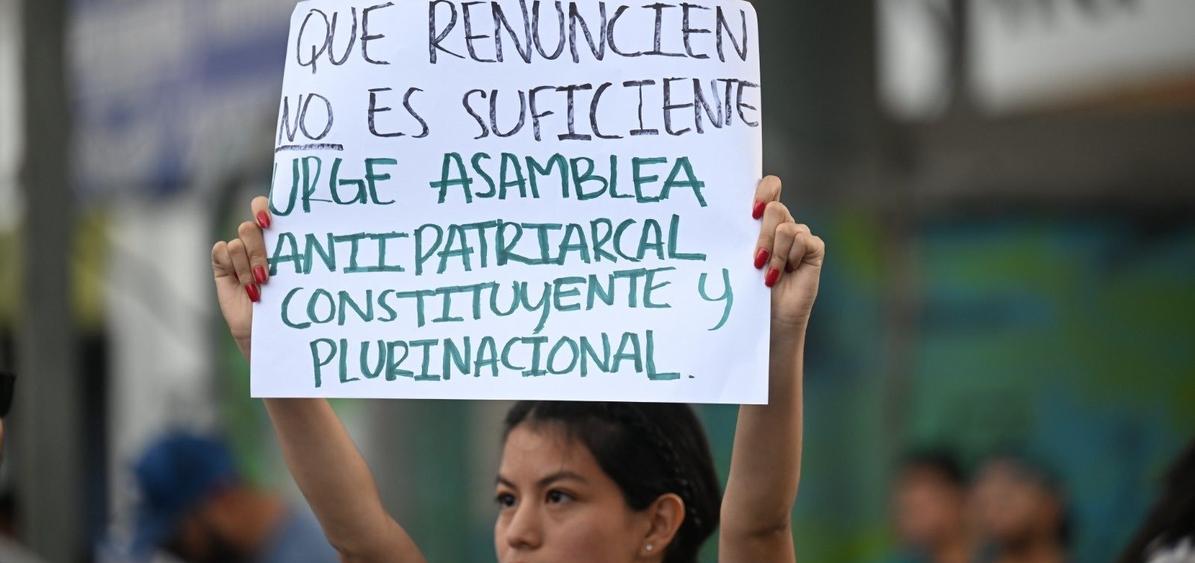 QUE RENUNCIEN
NO ES SUFICIENTE
URGE ASAMBLEA
ANTIPATRIARCAL
CONSTITUYENTE Y
PLURINACIONAL.